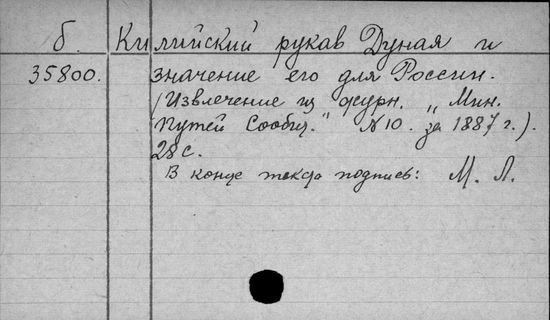 б. Килийский рукав Дуная и
35800. значение его для России.
(Извлечение из журн. „Мин.
Путей Сообщ." N 10. за 1887 г.).
28 с.
В конце текста подпись: М. Л.